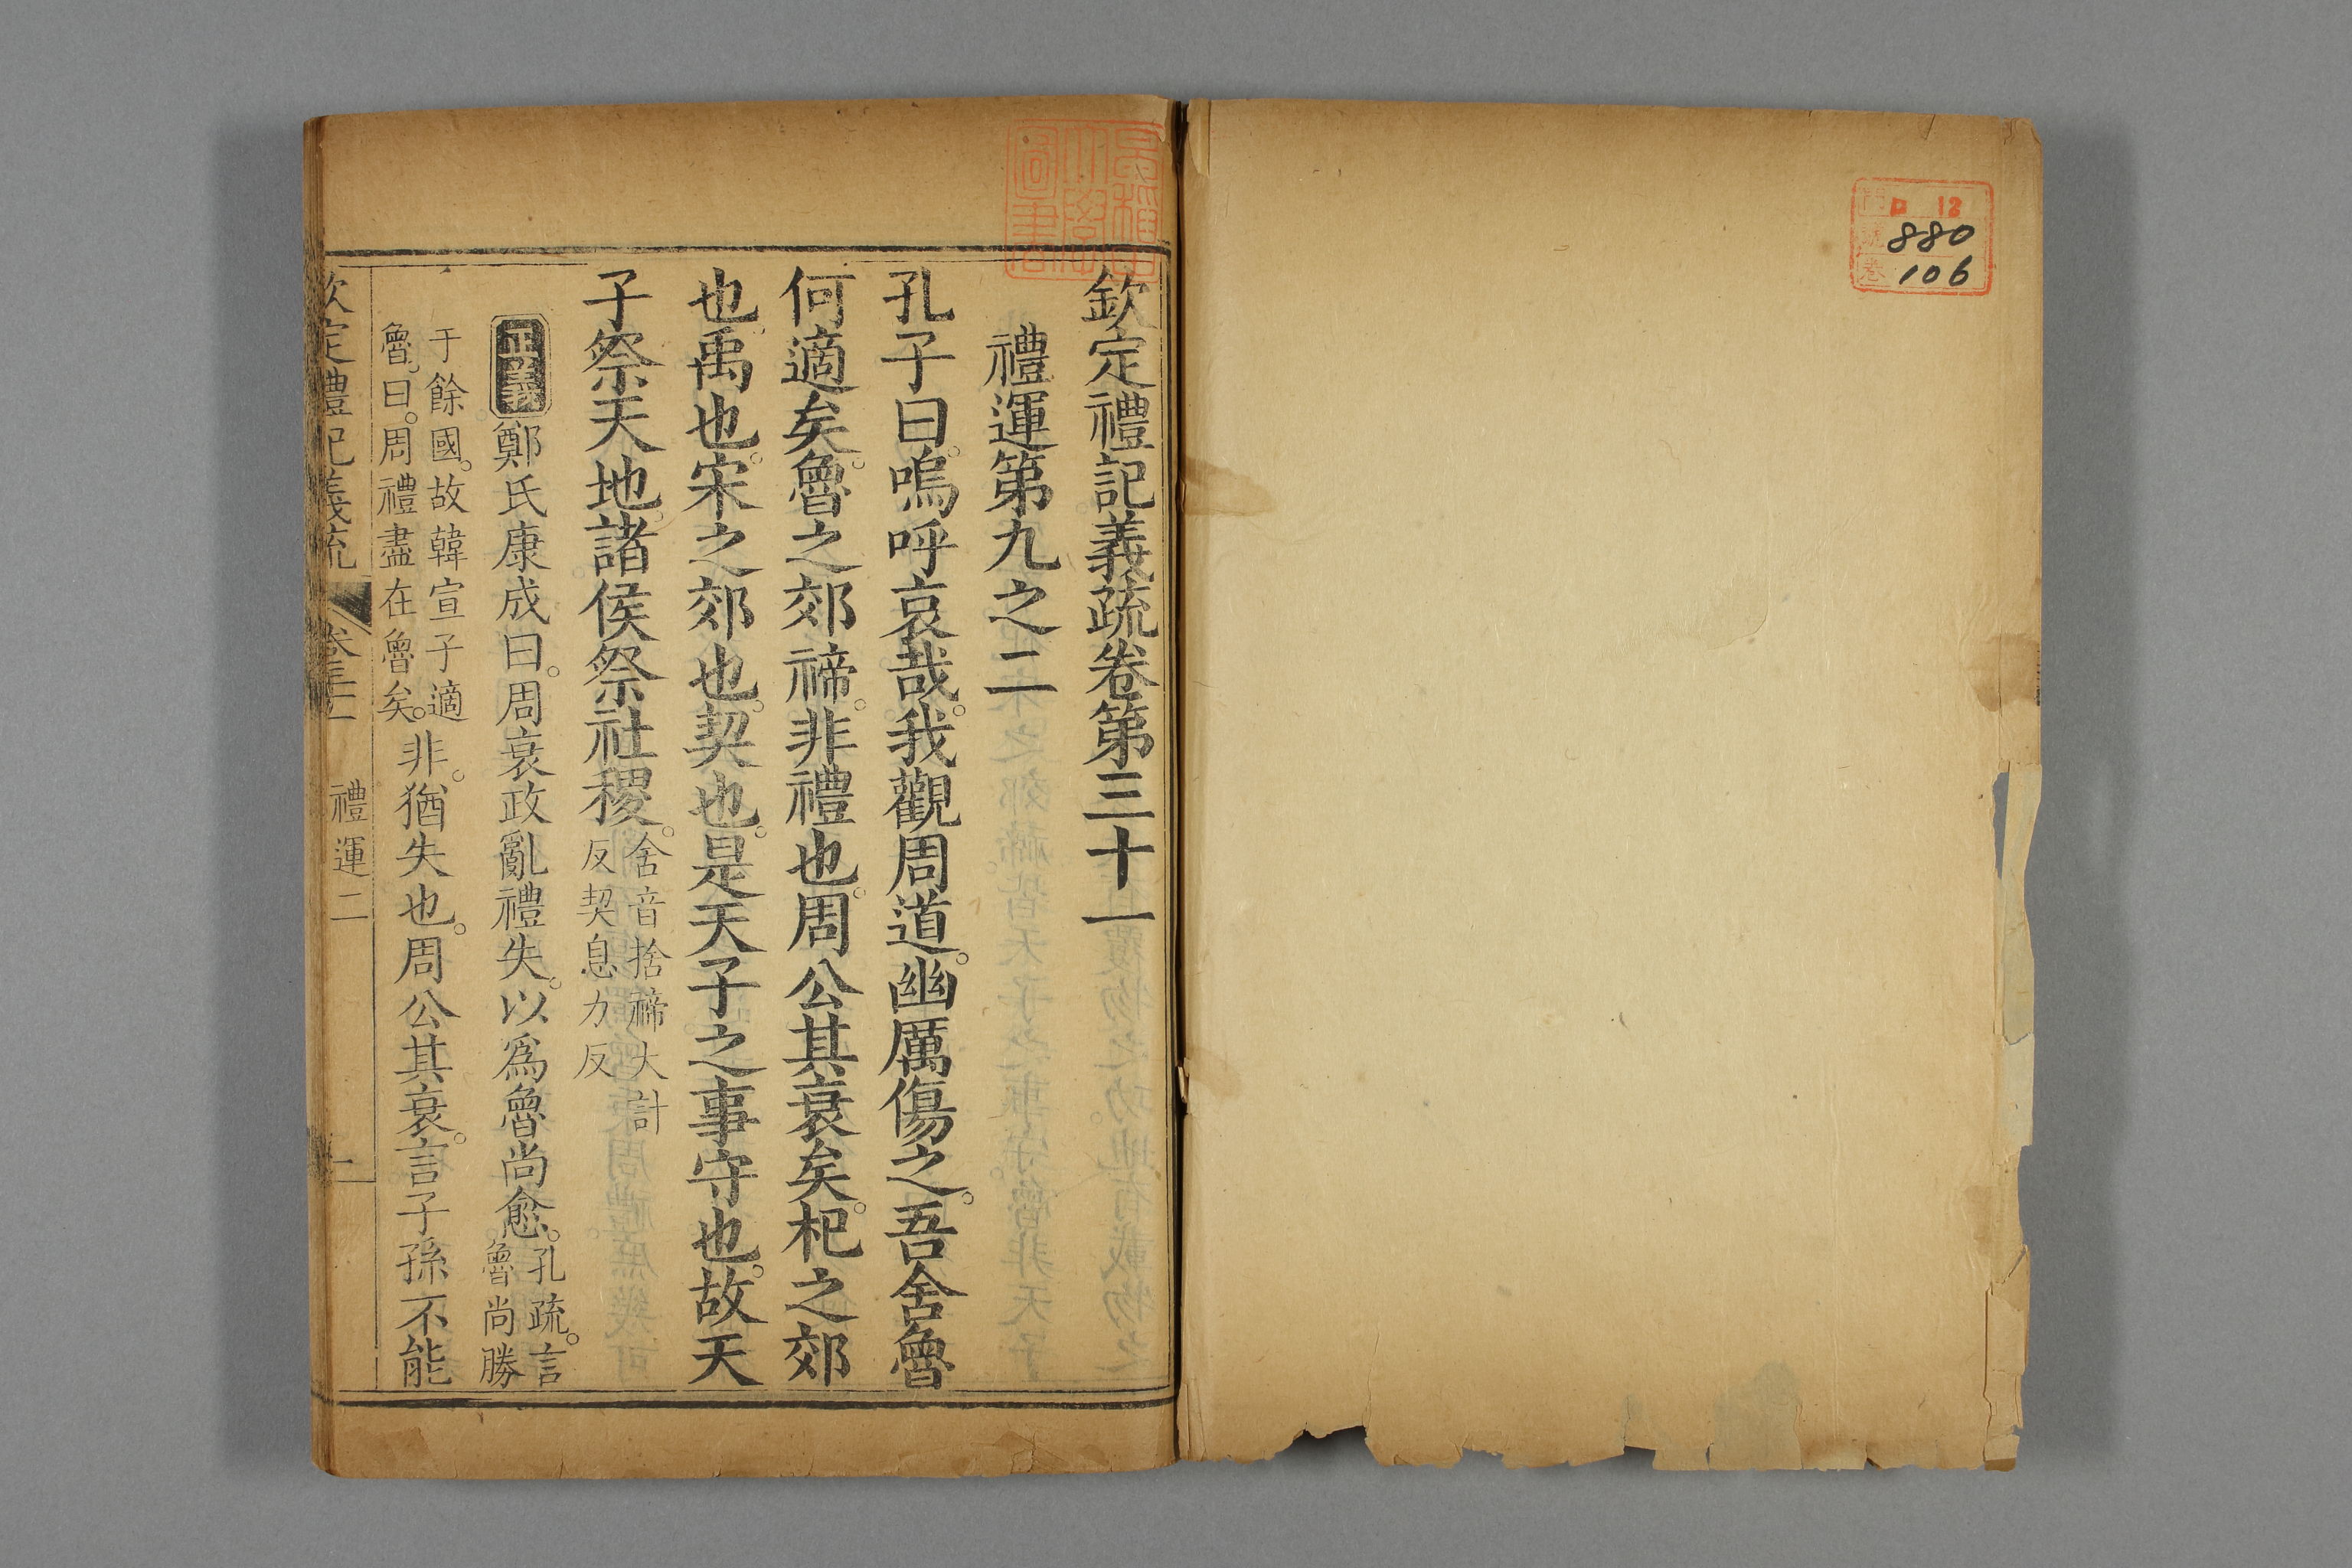 門 ロ 12
號 880
卷 106
早稲田大學圖書
欽定禮記義疏卷第三十一
禮運第九之二
孔子曰。嗚呼哀哉。我觀周道。幽厲傷之。吾舍魯
何適矣。魯之郊禘。非禮也。周公其衰矣。杞之郊
也。禹也。宋之郊也。契也。是天子之事守也。故天
子祭天地。諸侯祭社稷。
舍音捨禘大計
反契息力反
正義鄭氏康成曰。周衰政亂禮失。以爲魯尚愈。
孔疏。言
魯尚勝
于餘國。故韓宣子適
魯。曰。周禮盡在魯矣。
非。猶失也。周公其衰。言子孫不能
欽定禮記義疏 卷三十一 禮運二 一